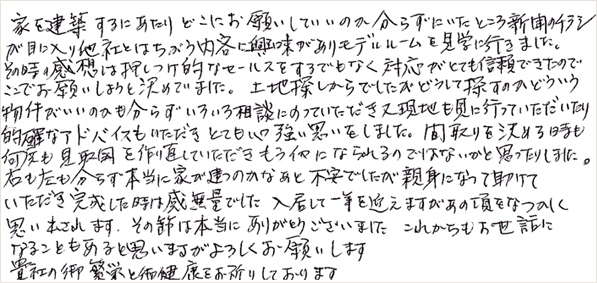 家を建築するにあたりどこにお願いしていいのか分らずにいたところ新聞のチラシ
が目に入り他社とはちがう内容に興味がありモデルルームを見学に行きました。
その時の感想は押しつけ的なセールスをするでもなく対応がとても信頼できたので
ここでお願いしようと決めていました。土地探しからでしたがどうして探すのかどういう
物件がいいのかも分らずいろいろ相談にのっていただき又現地も見に行っていただいたり
的確なアドバイスもいただきとても心強い思いをしました。間取りを決める時も
何度も見取図を作り直していただきもうイヤになられるのではないかと思ったりしました。
右も左も分らず本当に家が建つのかなあと不安でしたが親身になって助けて
いただき完成した時は感無量でした 入居して一年を迎えますがあの頃をなつかしく
思い出されます。その節は本当にありがとうございました これからもお世話に
なることもあると思いますがよろしくお願いします
貴社の御繁栄と御健康をお祈りしております